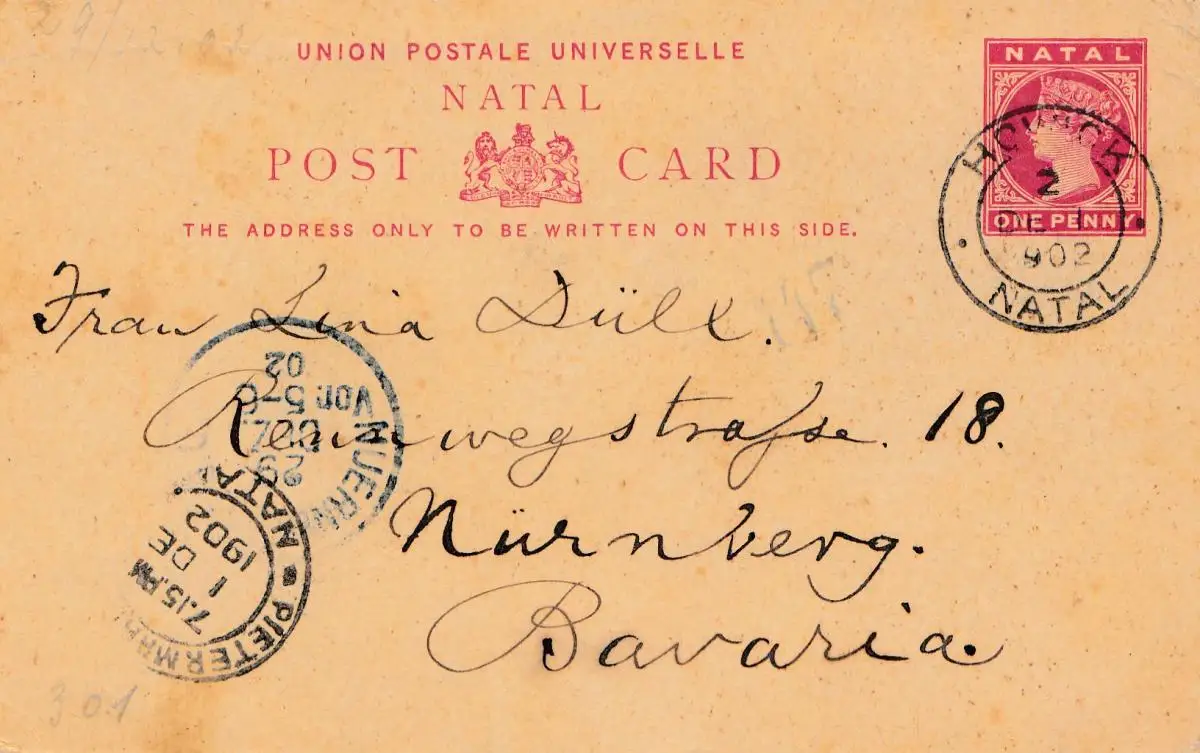 29/12.02
UNION POSTALE UNIVERSELLE
NATAL
POST CARD
THE ADDRESS ONLY TO BE WRITTEN ON THIS SIDE.
NATAL
ONE PENNY
HOWICK
2
DE 1
1902
NATAL
Frau Lina Düll.
Rennwegstrasse. 18.
Nürnberg.
Bavaria.
NUERN
29
DEZ.
Vor. 5-6
02
PIETERMAR
NATAL
7.15.PM
1 DE
1902
301